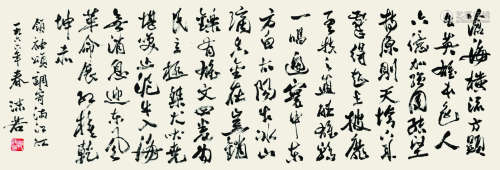 沧海横流方显
出英雄本色人
六亿加强团结坚
持原则天垮下来
擎得起世披靡
矣扶之直听雄鸡
一唱遍寰中东
方白太阳出冰山
滴真金在岂销
铄有雄文四卷为
民立极桀犬吠尧
堪笑止泥牛入海
无消息迎东风
革命展红旗乾
坤赤
领袖颂调寄满江红
一九六六年春 沫若